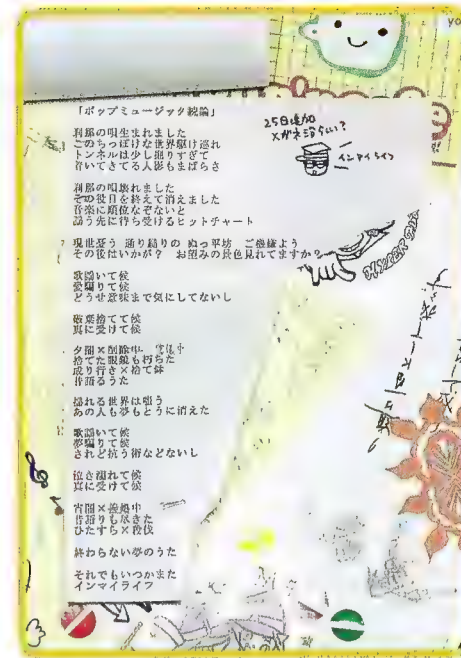 「ポップミュージック続論」
刹那の唄生まれました
このちっぽけな世界駆け巡れ
トンネルは少し掘りすぎて
着いてきてる人影もまばらさ
刹那の唄壊れました
その役目を終えて消えました
音楽に順位なぞないと
謳う先に待ち受けるヒットチャート
現世憂う 通り縋りの ぬっ平坊 ご機嫌よう
その後はいかが? お望みの景色見れてますか?
歌謳いて候
愛騙りて候
どうせ意味まで気にしてないし
敬葉捨てて候
真に受けて候
夕闇×削除中
捨てた眼鏡も朽ちた
成り行き×捨て鉢
昔語るうた
揺れる世界は嗤う
あの人も夢もとうに消えた
歌謳いて候
夢騙りて候
されど抗う術などないし
泣き濡れて候
真に受けて候
宵闇×接続中
昔語りも尽きた
ひたすら×殺伐
終わらない夢のうた
それでもいつかまた
インマイライフ
25日追加
インマイライフ
yo